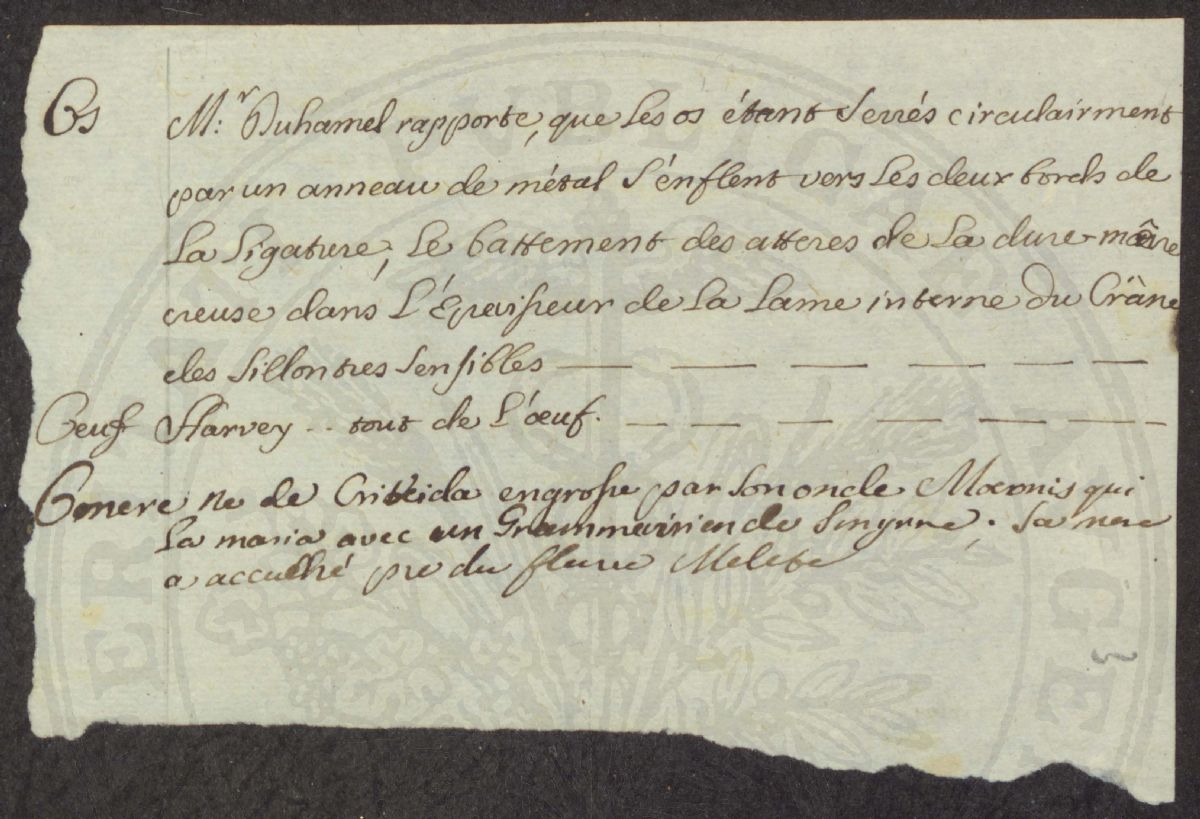 Os M.r Duhamel rapporte, que les os étant serrés circulairment
par un anneau de métal s'enflent vers les deux bords de
la ligature; le battement des atteres de la dure-mère
creuse dans l'Epaisseur de la lame interne du Crâne
des sillontres sensibles — — — — — —
Oeuf Harvey .. tout de l'œuf. — — — — — —
Omere ne de Criteida engrosse par son oncle Maeonis qui
la maria avec un Grammairien de Smyrne; sa mere
a accuché pre du fleuve Melete